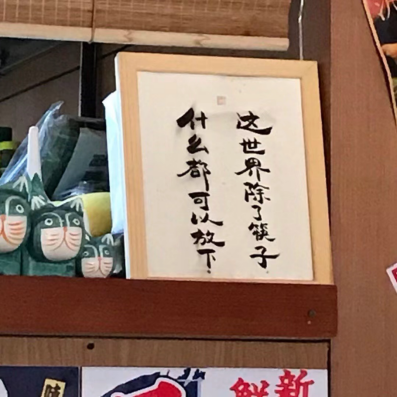 这世界除了筷子
什么都可以放下.
新
鮮
味